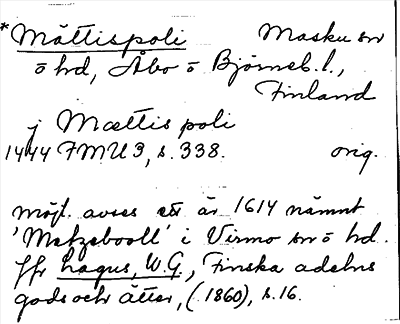 *Mättispoli Masku sn
o hd, Åbo o Björneb. l.,
Finland
j Mættis poli
1444 FMU 3, s. 338. orig.
möjl. avses ett år 1614 nämnt
'Metzebooll' i Virmo sn o hd.
Jfr Lagus, W.G., Finska adelns
gods och ätter, (1860), s. 16.